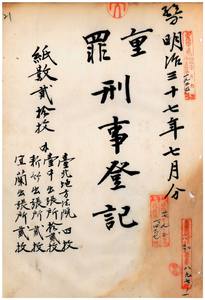 明治三十七年七月分
重罪
刑事登記
紙数貳拾枚
臺北地方法院 四枚
臺中出張所拾貳枚
新竹出張所貳枚
宜蘭出張所貳枚